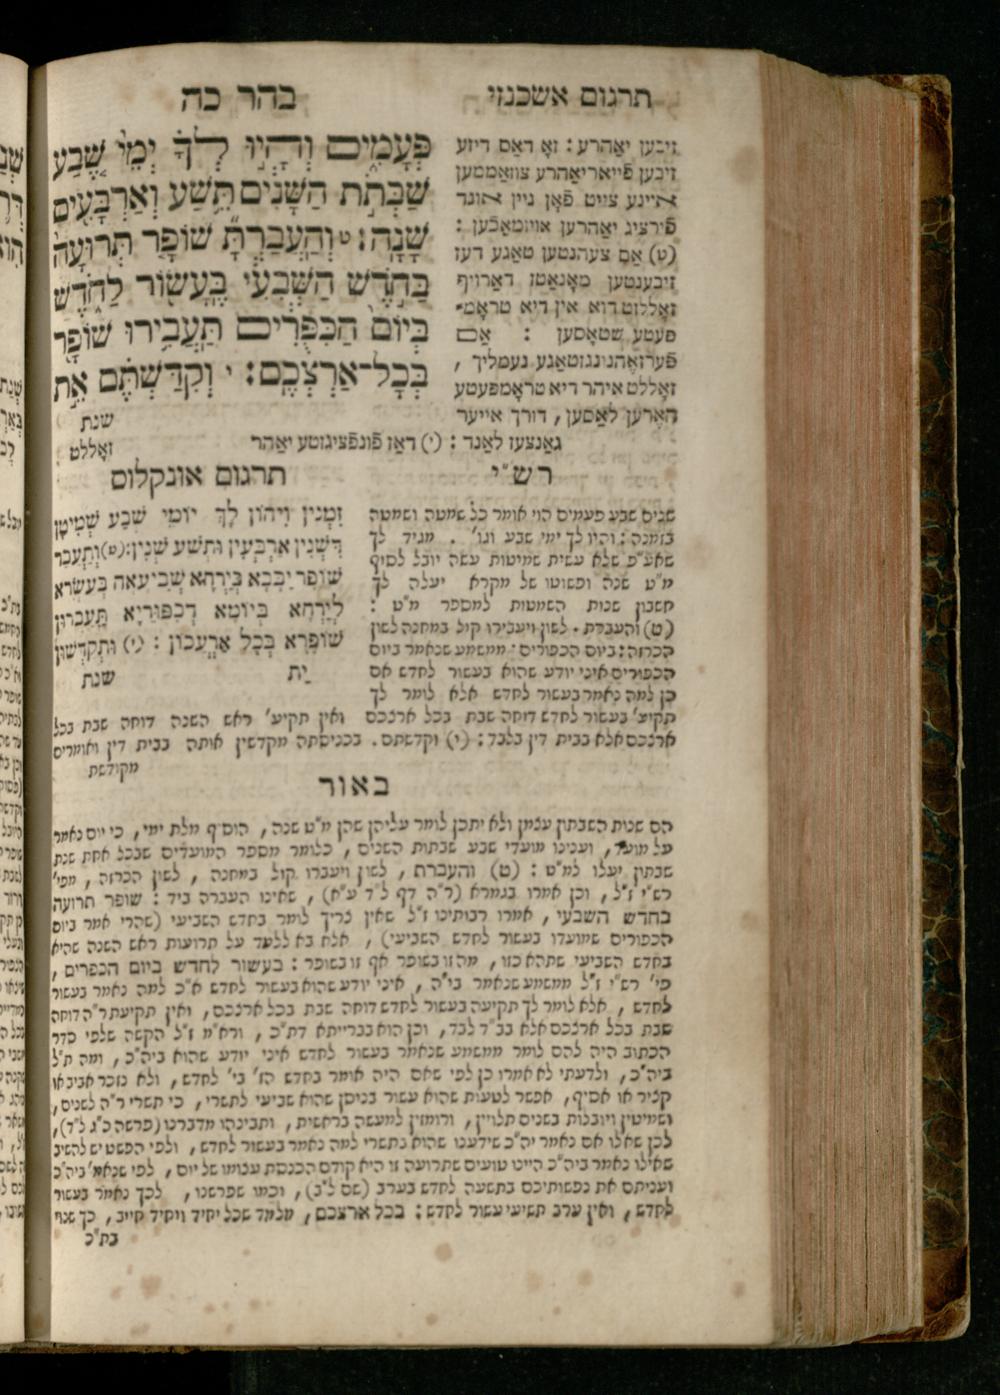 תרגום אשכנזי
בהר כה
זיבען יאָהרע : זאָ דאַס דיזע
זיבען פֿייאריאָהרע צוזאַממען
איינע צייט פֿאָן ניין אונד
פֿירציג יאָהרען אויסמאַכֿען :
(ט) אַם צעהנטען טאַגע דעז
זיבענטען מאָנאַטז דאַרויף
זאָללזט דוא אין דיא טראָמ־
פעטע שטאָסען : אַם
פֿערזאָהנונגזטאַגע נעמליך ,
זאָללט איהר דיא טראָמפּעטע
האָרען לאַסען , דורך אייער
גאַנצעז לאַנד : (י) דאז פֿונפֿציגזטע יאָהר
פְּעָמִים וְהָיוּ לְךָ יְמֵי שֶׁבַע
שַׁבְּתֹת הַשָּׁנִים תֵּשַׁע וְאַרְבָּעִים
שָׁנָה׃ ט וְהַעֲבַרְתָּ שׁוֹפַר תְּרוּעָה
בַּחֹדֶשׁ הַשְּׁבִעִי בֶּעָשׂוֹר לַחֹדֶשׁ
בְּיוֹם הַכִּפֻּרִים תַּעֲבִירוּ שׁוֹפָר
בְּכָל־אַרְצְכֶם׃ י וְקִדַּשְׁתֶּם אֵת
שנת
זאָללט
רש"י
שנים שבע פעמים הוי אומר כל שמטה ושמטה
בזמנה : והיו לך ימי שבע וגו' . מגיד לך
שאע"פ שלא עשית שמיטות עשה יובל לסוף
מ"ט שנה ופשוטו של מקרא יעלה לך
חשבון שנות השמטות למספר מ"ט :
(ט) והעברת . לשון ויעבירו קול במחנה לשון
הכרזה : ביום הכפורים . ממשמע שנאמר ביום
הכפורים איני יודע שהוא בעשור לחדש אם
כן למה נאמר בעשור לחדש אלא לומר לך
תקיע' בעשור לחדש דוחה שבת בכל ארצכם ואין תקיע' ראש השנה דוחה שבת בכל
ארצכם אלא בבית דין בלבד : (י) וקדשתם . בכניסתה מקדשין אותה בבית דין ואומרים
מקודשת
תרגום אונקלוס
זִמְנִין וִיהוֹן לָךְ יוֹמֵי שְׁבַע שְׁמִיטָן
דִּשְׁנִין אַרְבְּעִין וּתְשַׁע שְׁנִין : (ט) וְתַעְבַּר
שׁוֹפַר יַבָּבָא בְּיַרְחָא שְׁבִיעָאָה בְּעַשְׂרָא
לְיַרְחָא בְּיוֹמָא דְכִפּוּרַיָּא תַּעְבְּרוּן
שׁוֹפָרָא בְּכָל אַרְעֲכוֹן : (י) וּתְקַדְּשׁוּן
יָת שנת
באור
הם שנות השבתון עצמן ולא יתכן לומר עליהן שהן מ"ט שנה , הוסיף מלת ימי , כי יום נאמר
על מועד , וענינו מועדי שבע שבתות השנים , כלומר מספר המועדים שבכל אחת שנת
שבתון יעלו למ"ט : (ט) והעברת , לשון ויעברו קול במחנה , לשון הכרזה , מפי'
רש"י ז"ל , וכן אמרו בגמרא (ר"ה דף ל"ד ע"א) , שאינו העברה ביד : שופר תרועה
בחדש השבעי , אמרו רבותינו ז"ל שאין צריך לומר בחדש השביעי (שהרי אמר ביום
הכפורים שמועדו בעשור לחדש השביעי) , אלא בא ללמד על תרועות ראש השנה שהיא
בחדש השביעי שתהא כזו , מה זו בשופר אף זו בשופר : בעשור לחדש ביום הכפרים ,
פי' רש"י ז"ל ממשמע שנאמר בי"ה , איני יודע שהוא בעשור לחדש א"כ למה נאמר בעשור
לחדש , אלא לומר לך תקיעה בעשור לחדש דוחה שבת בכל ארצכם , ואין תקיעת ר"ה דוחה
שבת בכל ארצכם אלא בב"ד לבד , וכן הוא בברייתא דת"כ , ורא"מ ז"ל הקשה שלפי סדר
הכתוב היה להם לומר ממשמע שנאמר בעשור לחדש איני יודע שהוא ביה"כ , ומה ת"ל
ביה"כ , ולדעתי לא אמרו כן לפי שאם היה אומר בחדש הז' בי' לחדש , ולא נזכר אביב או
קציר או אסיף , אפשר לטעות שהוא עשור בניסן שהוא שביעי לתשרי , כי תשרי ר"ה לשנים ,
ושמיטין ויובלות בשנים תלויין , ורומזין למעשה בראשית , ותבינהו מדברנו (פרשה כ"ג ל"ד) ,
לכן שאלו אם נאמר יה"כ שידענו שהוא בתשרי למה נאמר בעשור לחדש , ולפי הפשט יש להשיב
שאילו נאמר ביה"כ היינו טועים שתרועה זו היא קודם הכנסת עצומו של יום , לפי שנאמ' ביה"כ
ועניתם את נפשותיכם בתשעה לחדש בערב (שם ל"ב) , וכמו שפרשנו , לכך נאמר בעשור
לחדש , ואין ערב תשיעי עשור לחדש : בכל ארצכם , מלמד שכל יחיד ויחיד חייב , כך שנוי
בת"כ